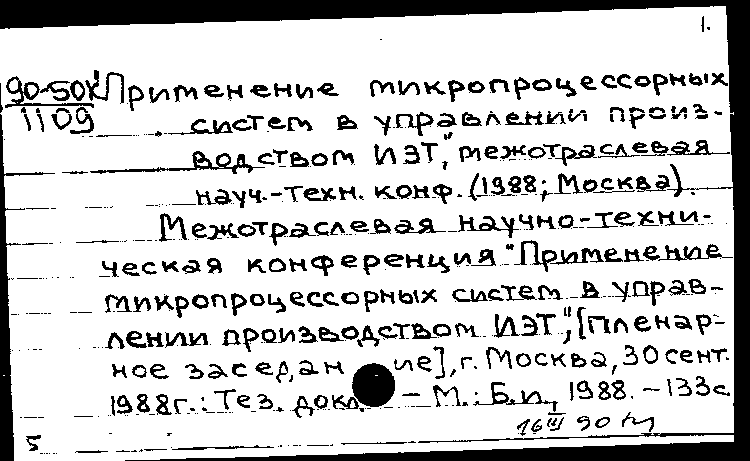 1.
90-50к "Применение микропроцессорных
1109 систем в управлении произ-
водством ИЭТ", межотраслевая
науч.-техн. конф. (1988; Москва).
Межотраслевая научно-техни-
ческая конференция "Применение
микропроцессорных систем в управ-
лении производством ИЭТ", [пленар-
ное заседание], г. Москва, 30 сент.
1988г.: Тез. докл. – М.: Б.и., 1988. – 133с.
16 III 90
5